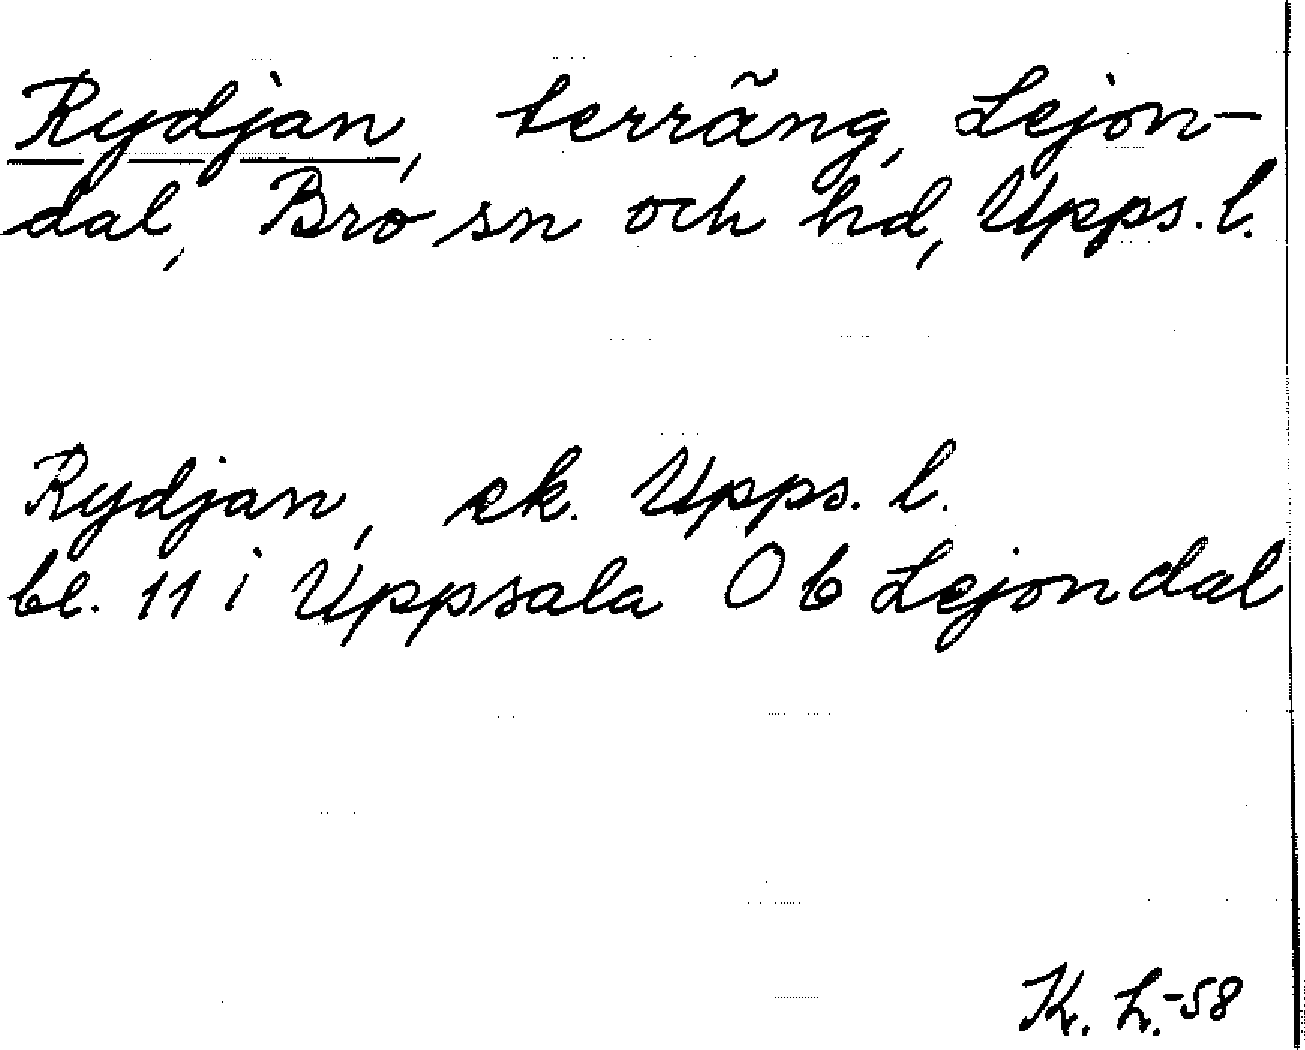 Rydjan, terräng, Lejon-
dal, Bro sn och hd, Upps. l.
Rydjan, ek. Upps. l.
bl. 11 i Uppsala Ob Lejondal
K. h.-58